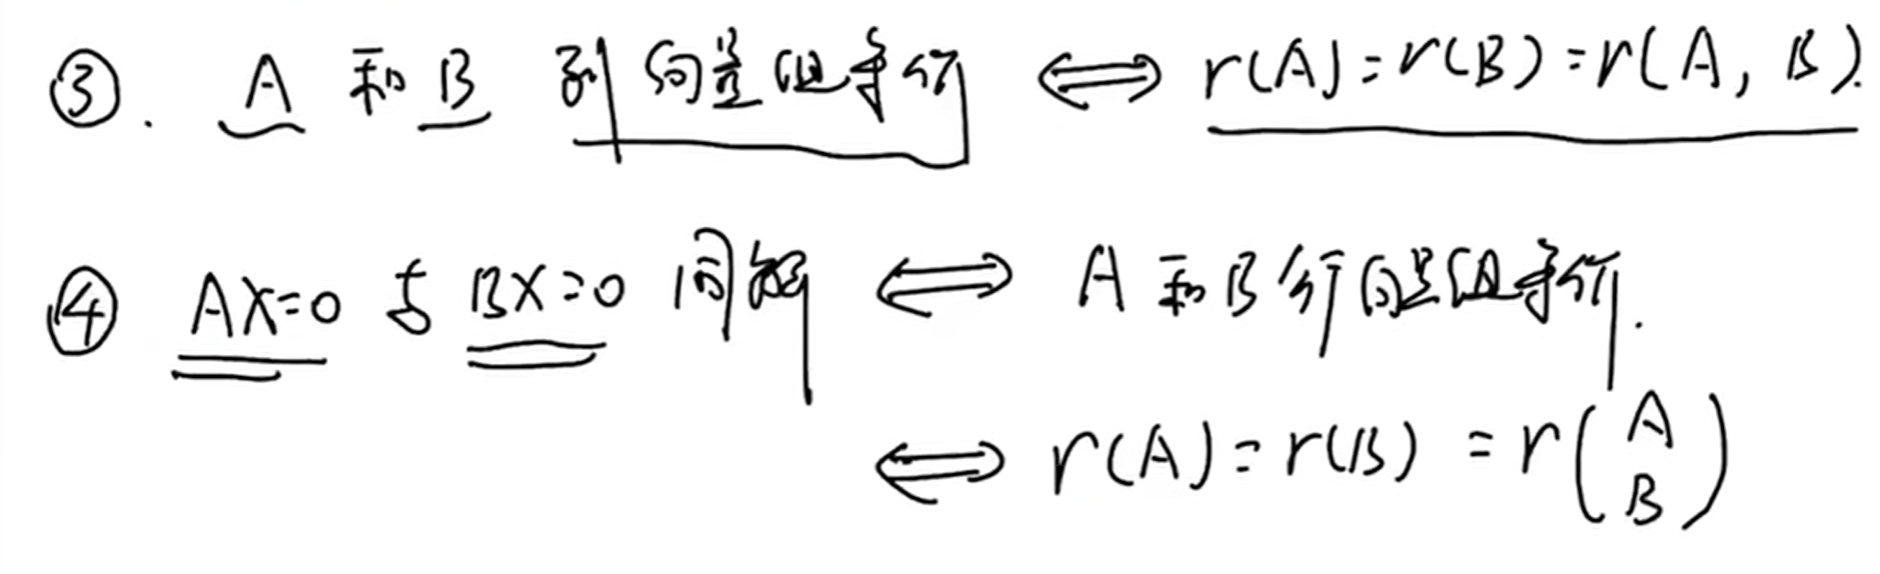 ③. A 和 B 列向量组等价 ⟺ r(A)=r(B)=r(A, B).
④ AX=0 与 BX=0 同解 ⟺ A 和 B 行向量组等价.
⟺ r(A)=r(B) =r(A
B)